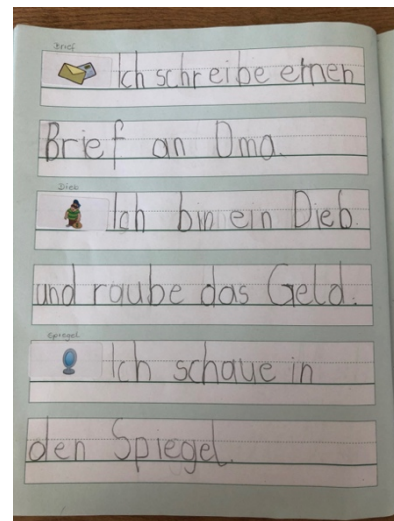 Brief
Ich schreibe einen
Brief an Oma.
Dieb
Ich bin ein Dieb.
und raube das Geld.
Spiegel
Ich schaue in
den Spiegel.